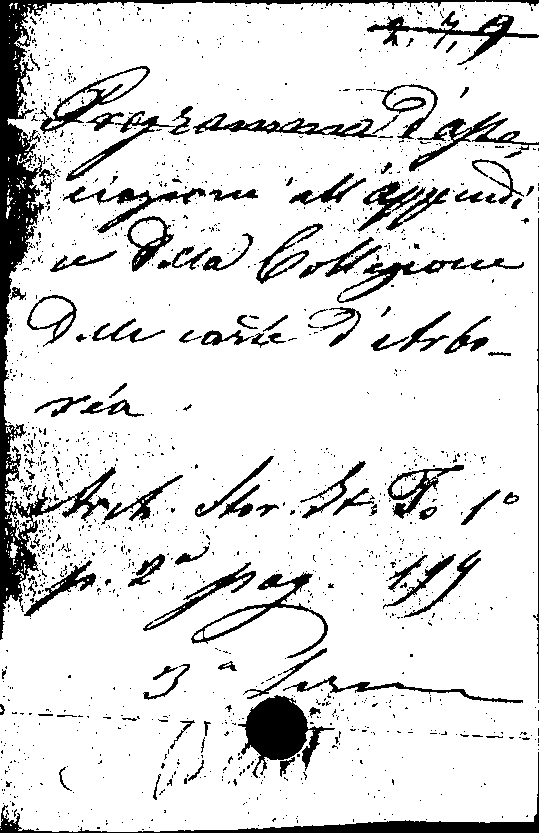 2. 7. 9
Programma d'asso,
ciazione all'appendi
ce della Collezione
delle carte d'Arbo-
réa.
Arch. Stor. It. To 1º
p. 2ª pag. 199
3ª Serie